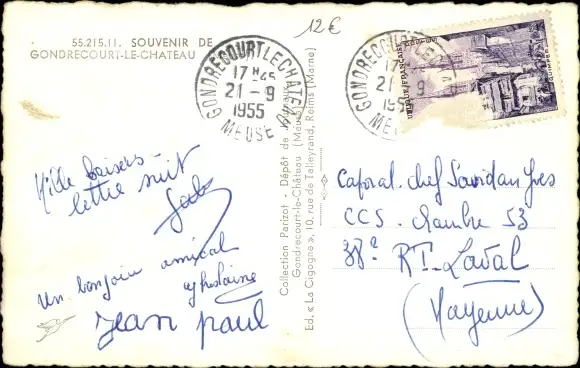 55.215.11. SOUVENIR DE
GONDRECOURT-LE-CHATEAU
12€
GONDRECOURT LE CHATEAU
17 H 45
21 - 9
1955
MEUSE
GONDRECOURT LE
21 - 9
1955
ME
Mille baisers
lettre suit
Gab
Un bonjour amical
ghislaine
Jean paul
Collection Parizot - Dépôt de
Gondrecourt-le-Château (Meuse)
Ed. « La Cigogne », 10, rue de Talleyrand, Reims (Marne)
Caporal. Chef Yves
CCS. Chambre 53
38e RT. Laval
(Mayenne)